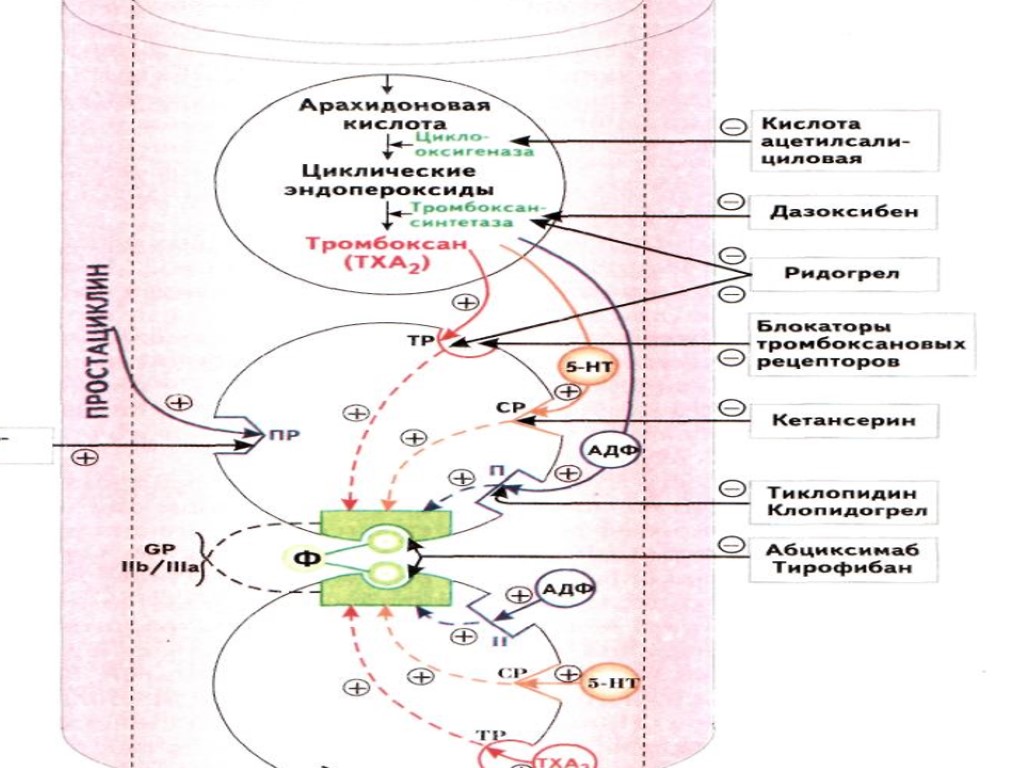 Арахидоновая
кислота
Цикло-
оксигеназа
Циклические
эндопероксиды
Тромбоксан-
синтетаза
Тромбоксан
(TXA₂)
Кислота
ацетилсали-
циловая
Дазоксибен
Ридогрел
Блокаторы
тромбоксановых
рецепторов
Кетансерин
Тиклопидин
Клопидогрел
Абциксимаб
Тирофибан
ПРОСТАЦИКЛИН
ТР
5-НТ
СР
ПР
АДФ
П
GP
IIb/IIIa
Ф
АДФ
П
СР
5-НТ
ТР
TXA₂